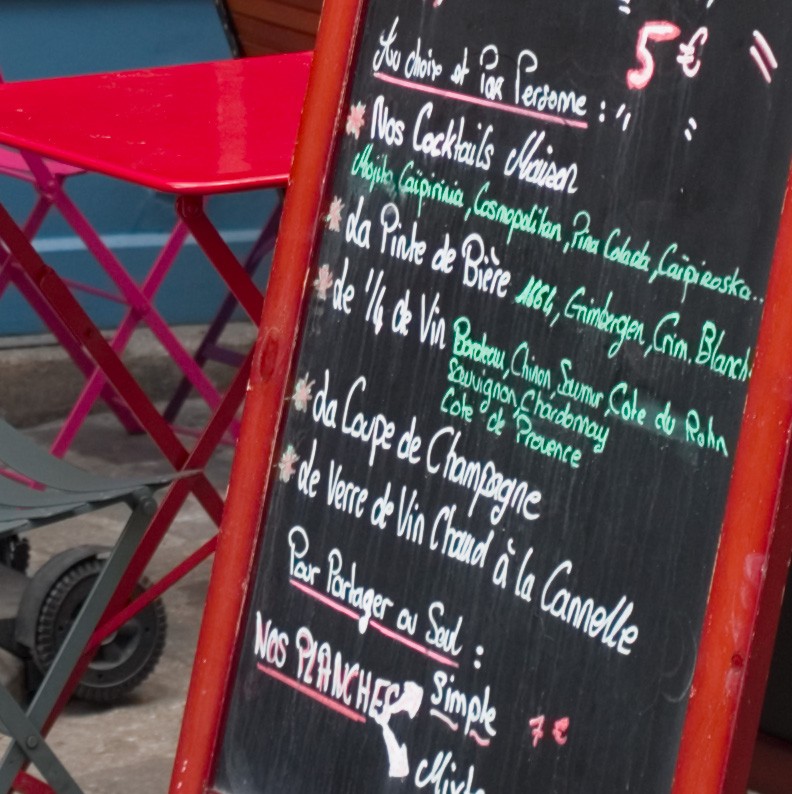 5€
Au choix et Par Personne :
Nos Cocktails Maison
Mojito, Caïpirinia, Cosmopolitan, Pina Colada, Caïpiroska..
La Pinte de Bière 1664, Grimbergen, Crim. Blanch
Le 1/4 de Vin Bordeau, Chinon, Saumur, Cote du Rohn
Sauvignon, Chardonnay
Cote de Provence
La Coupe de Champagne
Le Verre de Vin Chaud à la Cannelle
Pour Partager ou Seul :
Nos PLANCHES Simple 7€
Mixte